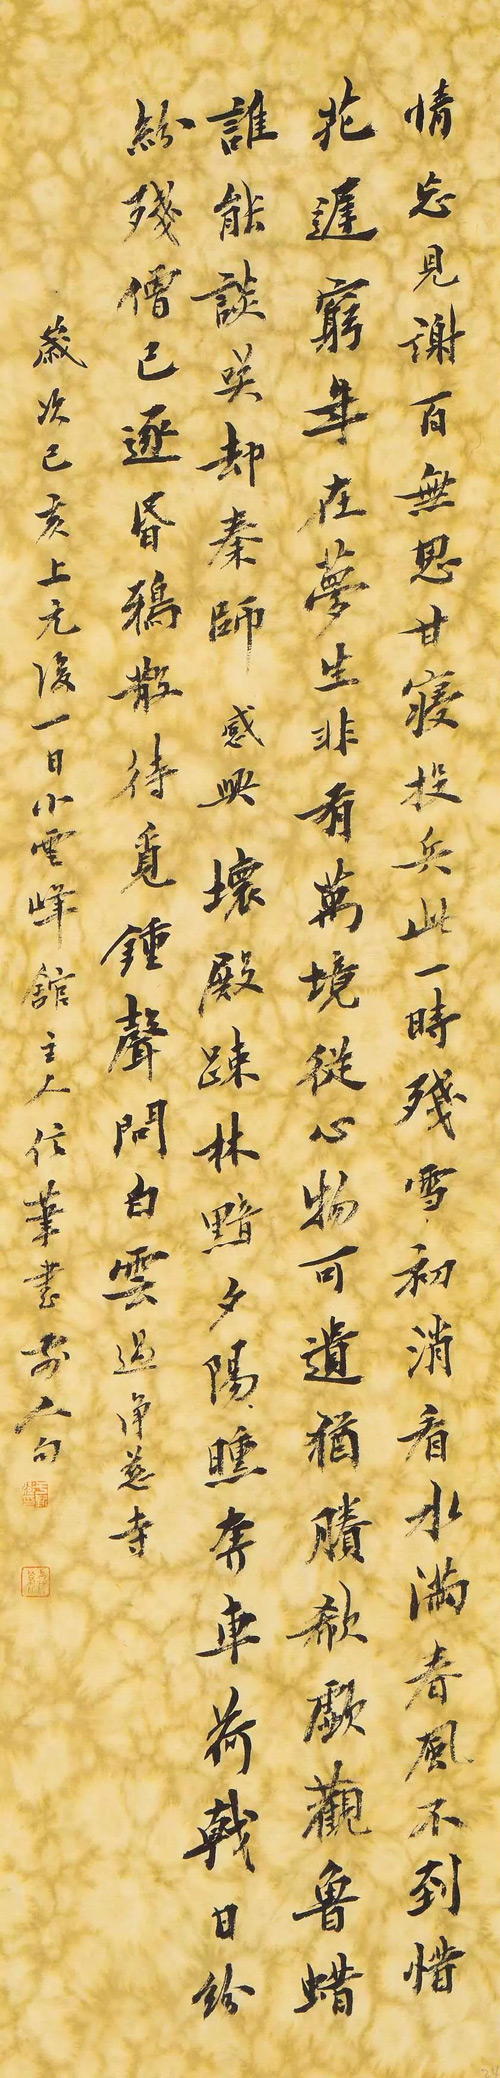 情忘見謝百無思甘寢投兵此一時殘雪初消看水滿春風不到惜
花遲窮年在夢生非有萬境從心物可遺猶賸欷歔觀魯蜡
誰能談笑却秦師 感興 壞殿疎林黯夕陽曛奔車荷戟日紛
紛殘僧已逐昏鴉散待覓鍾聲問白雲 過淨慈寺
歲次己亥上元後一日小雲峰館主人信筆書前人句